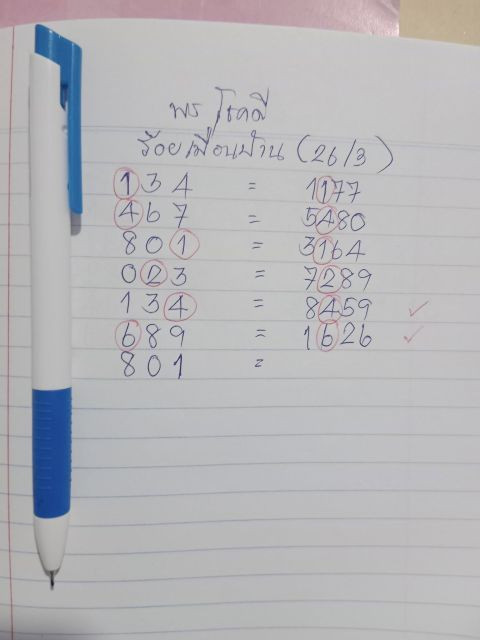 พร โชคดี
ร้อยเมื่อนบ้าน (26/3)
134 = 1177
467 = 5480
801 = 3164
023 = 7289
134 = 8459 ✓
689 = 1626 ✓
801 =